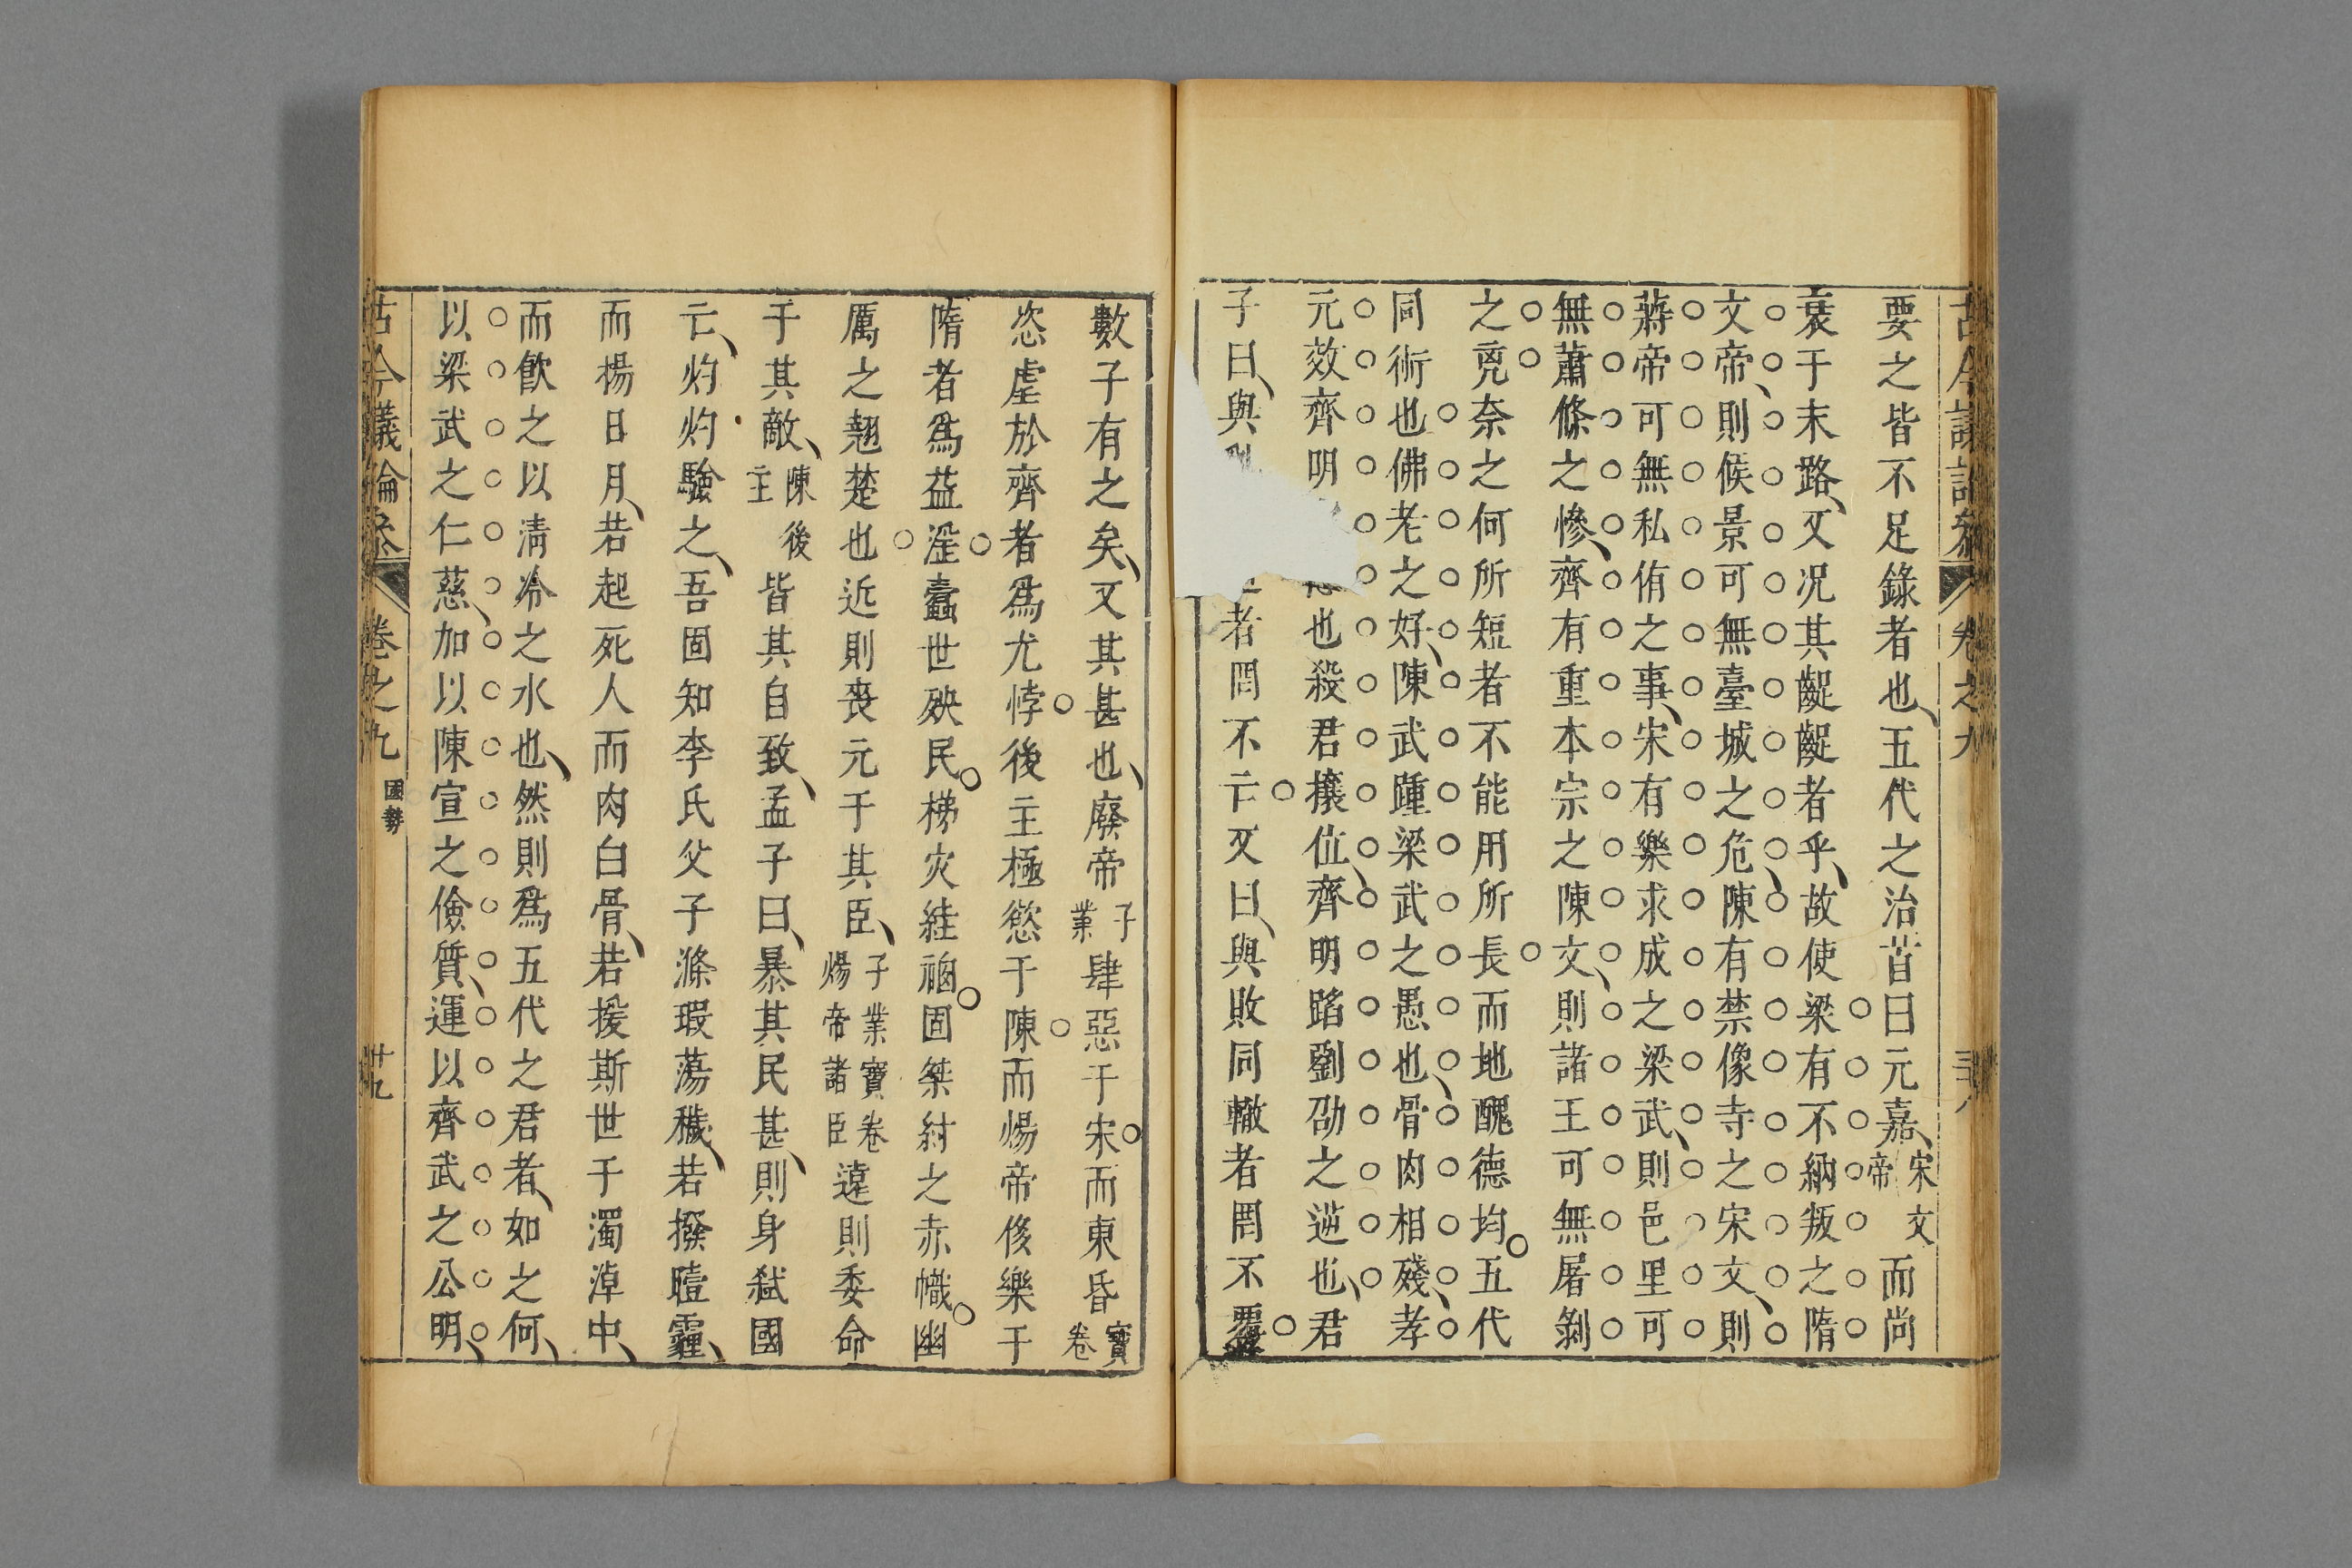 古今議論參 卷之九
要之皆不足錄者也五代之治昔曰元嘉宋文帝而尚
衰于末路又况其齷齪者乎故使梁有不納叛之隋
文帝則候景可無臺城之危陳有禁像寺之宋文則
蔣帝可無私侑之事宋有樂求成之梁武則邑里可
無蕭條之慘齊有重本宗之陳文則諸王可無屠剝
之兇奈之何所短者不能用所長而地醜德均五代
同術也佛老之好陳武踵梁武之愚也骨肉相殘孝
元效齊明也殺君攘位齊明蹈劉劭之逆也君
子曰與者罔不亡又曰與敗同轍者罔不覆
數子有之矣又其甚也廢帝子業肆惡于宋而東昏寶卷
恣虐於齊者爲尤悖後主極慾于陳而煬帝後樂于
隋者爲益滛蠹世殃民梯灾絓禍固桀紂之赤幟幽
厲之翹楚也近則喪元于其臣子業寶卷煬帝諸臣遠則委命
于其敵陳後主皆其自致孟子曰暴其民甚則身弑國
亡灼灼驗之吾固知李氏父子滌瑕蕩穢若撥曀霾
而揚日月若起死人而肉白骨若援斯世于濁淖中
而飲之以淸冷之水也然則爲五代之君者如之何
以梁武之仁慈加以陳宣之儉質運以齊武之公明
古今議論參 卷之九 國勢 廿九